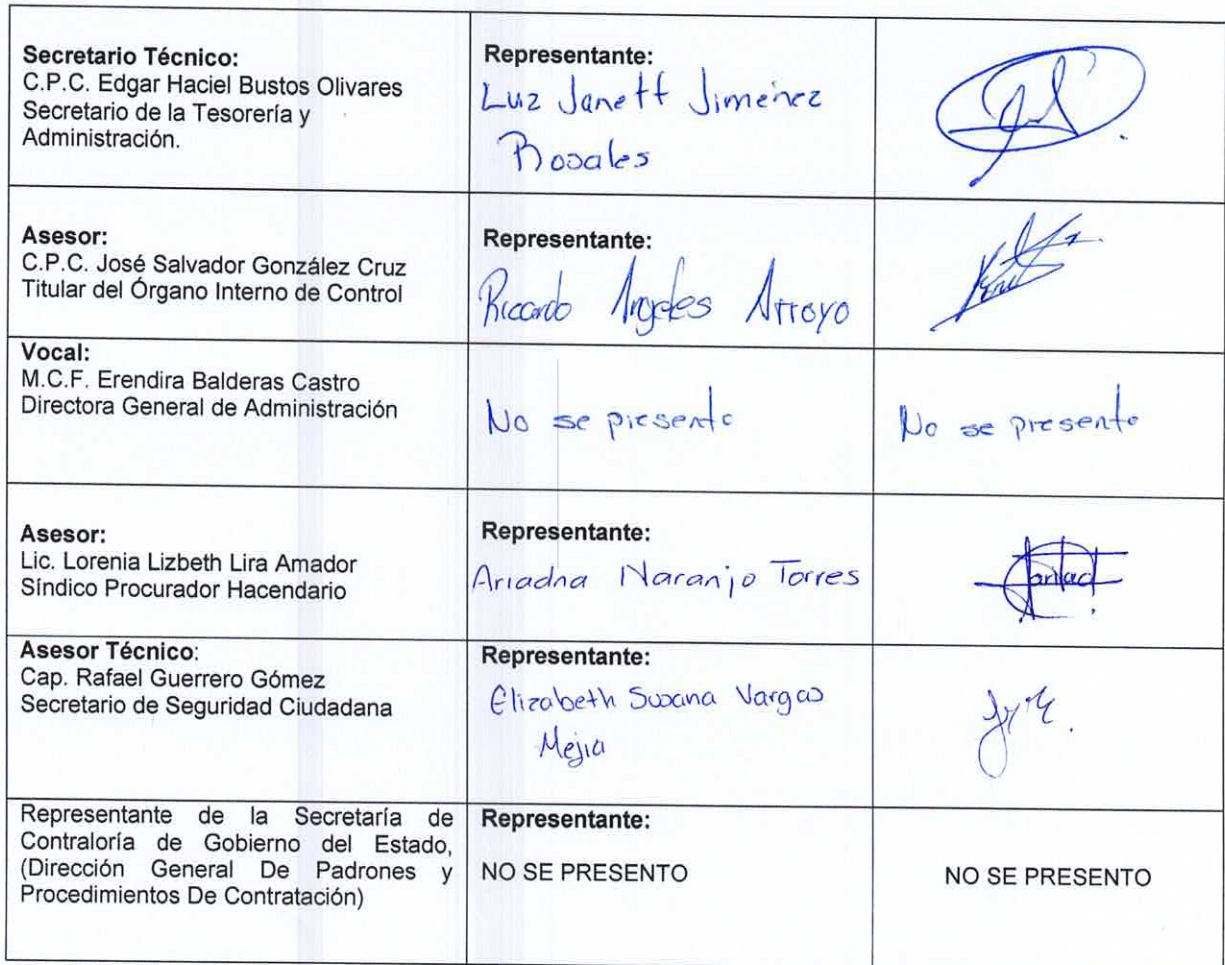 Secretario Técnico:
C.P.C. Edgar Haciel Bustos Olivares
Secretario de la Tesorería y
Administración.
Representante:
Luz Janett Jimenez
Rosales
Asesor:
C.P.C. José Salvador González Cruz
Titular del Órgano Interno de Control
Representante:
Ricardo Angeles Arroyo
Vocal:
M.C.F. Erendira Balderas Castro
Directora General de Administración
No se presento
No se presento
Asesor:
Lic. Lorenia Lizbeth Lira Amador
Síndico Procurador Hacendario
Representante:
Ariadna Naranjo Torres
Asesor Técnico:
Cap. Rafael Guerrero Gómez
Secretario de Seguridad Ciudadana
Representante:
Elizabeth Susana Vargas
Mejia
Representante de la Secretaría de
Contraloría de Gobierno del Estado,
(Dirección General De Padrones y
Procedimientos De Contratación)
Representante:
NO SE PRESENTO
NO SE PRESENTO